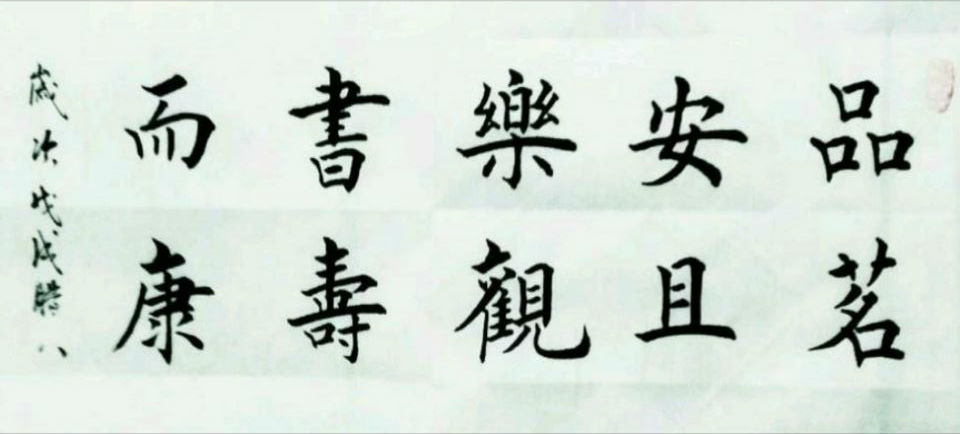 品茗
安且
樂觀
書壽
而康
歲次戊戌腊八